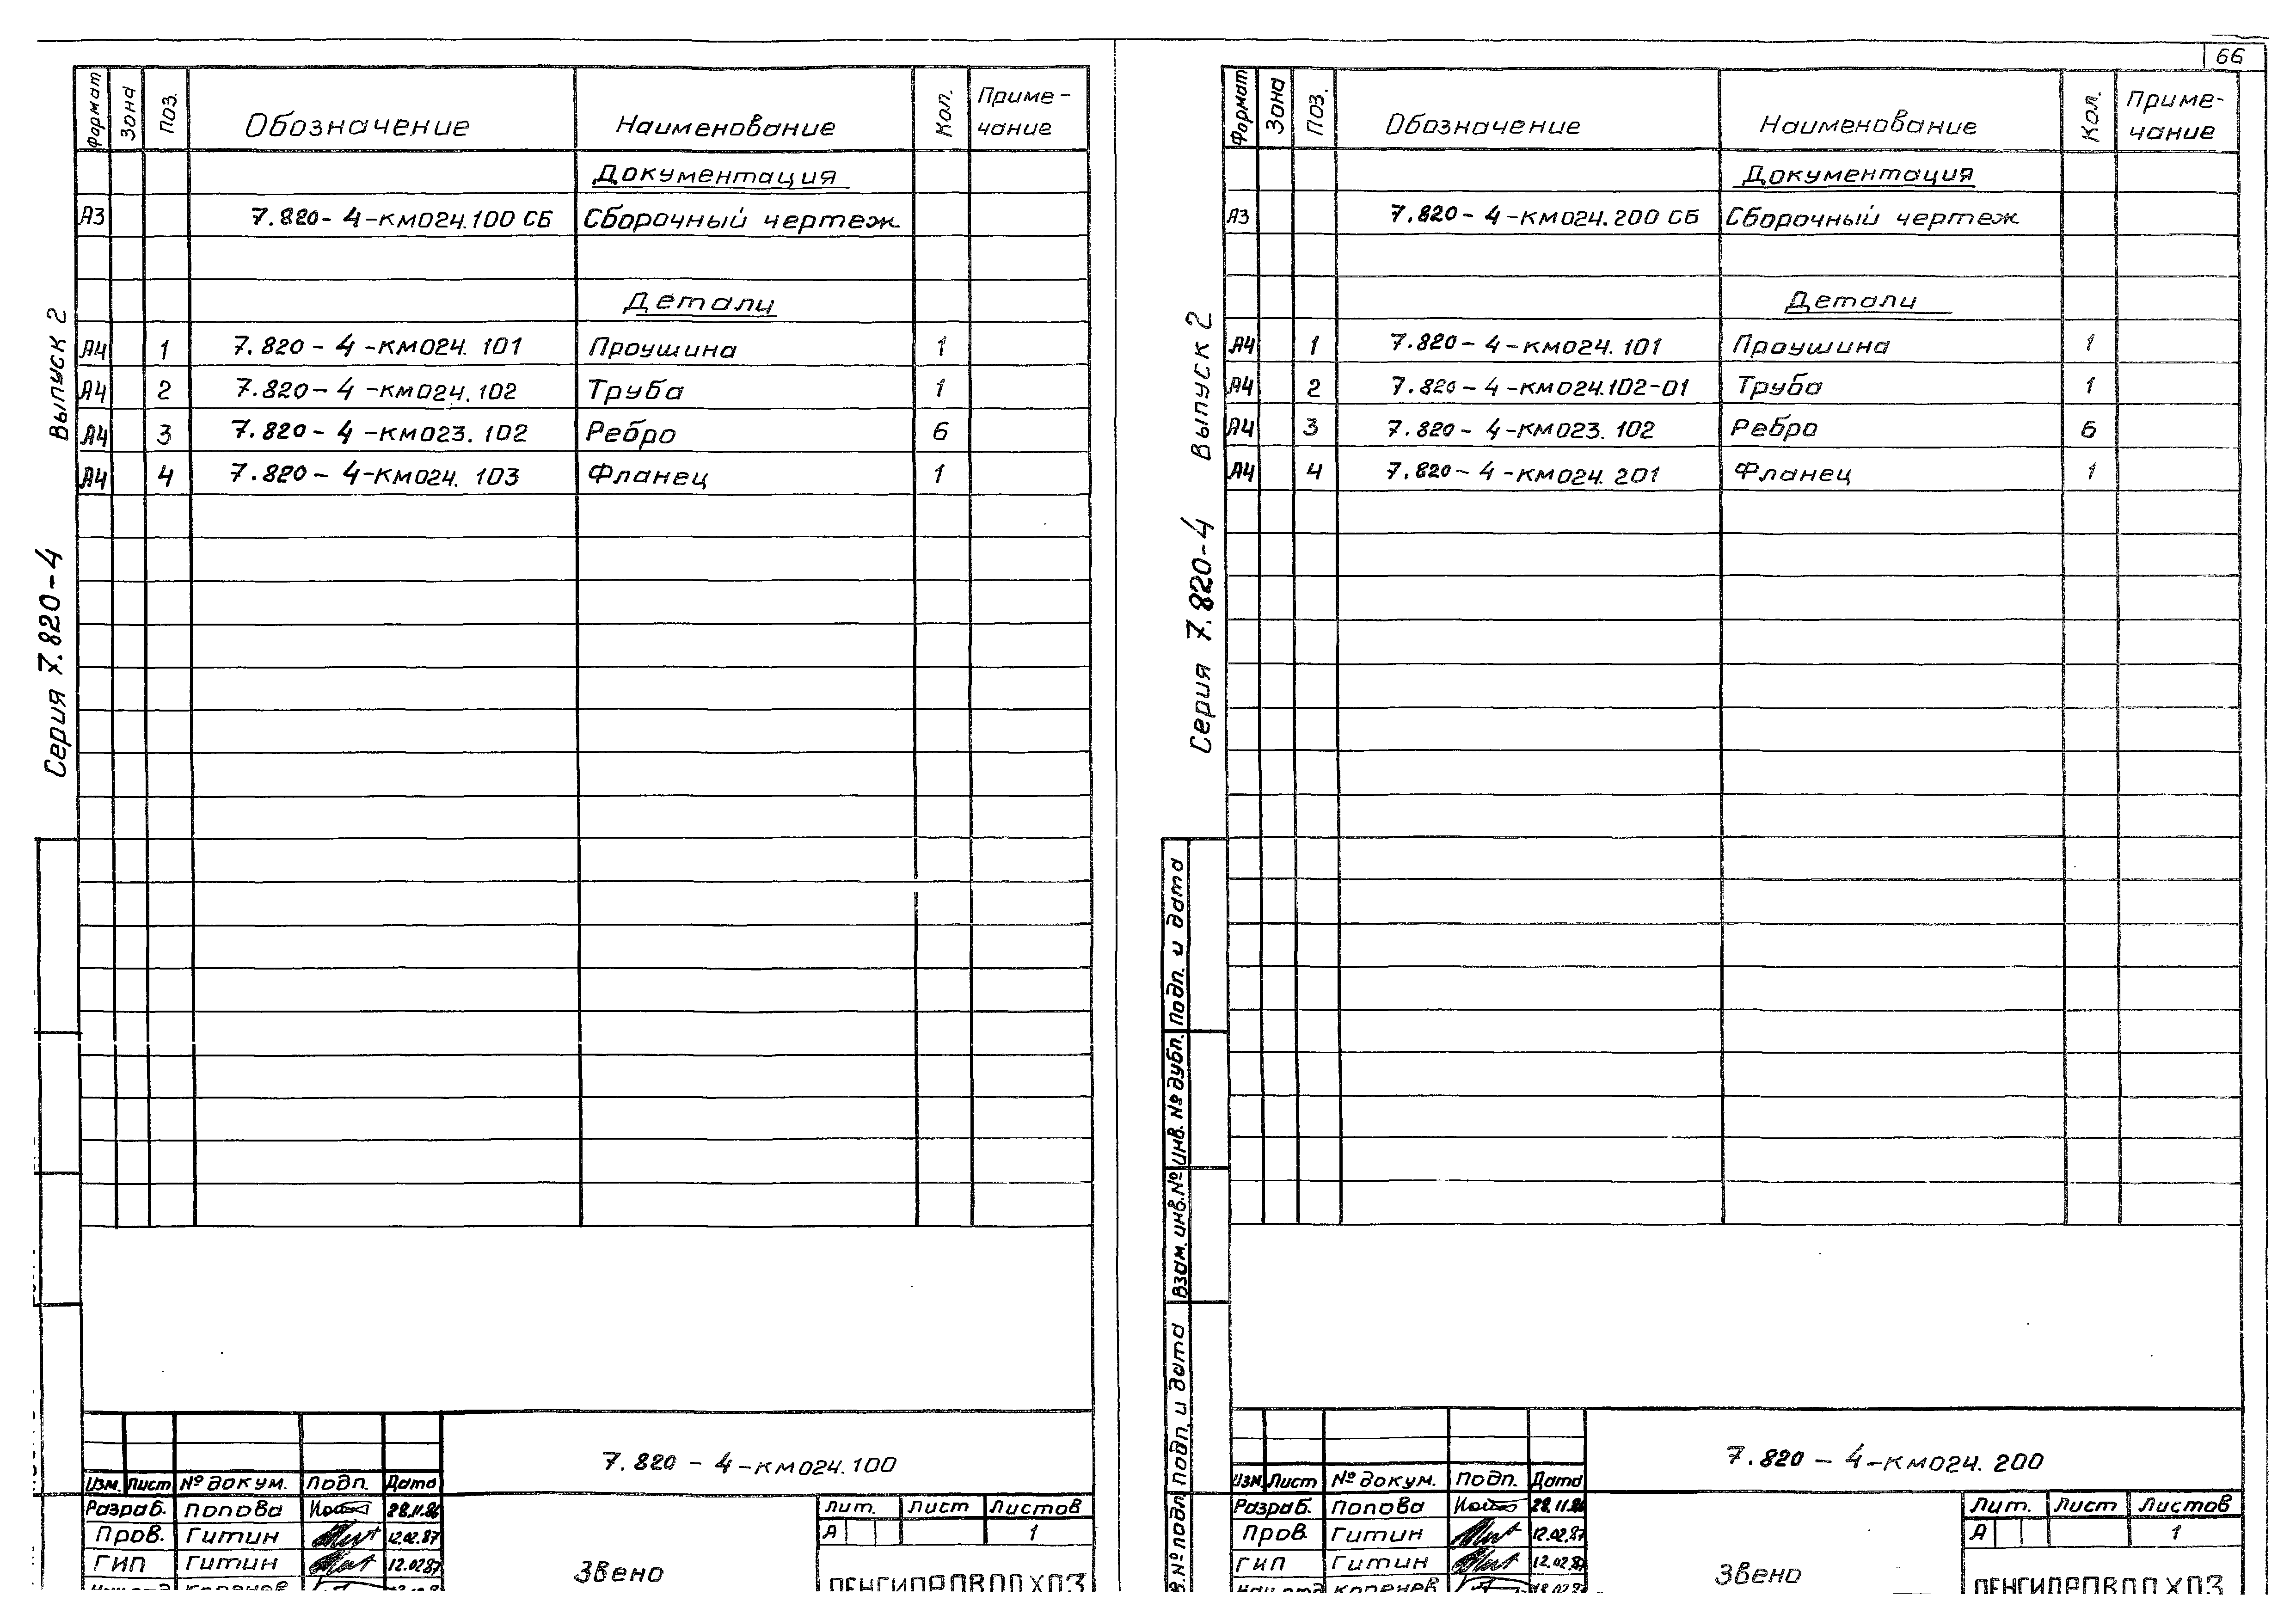 66
Формат Зона Поз. Обозначение Наименование Кол. Приме-
чание
Документация
А3 7.820-4-КМ024.100 СБ Сборочный чертеж
Детали
А4 1 7.820-4-КМ024.101 Проушина 1
А4 2 7.820-4-КМ024.102 Труба 1
А4 3 7.820-4-КМ023.102 Ребро 6
А4 4 7.820-4-КМ024.103 Фланец 1
Серия 7.820-4 Выпуск 2
7.820-4-КМ024.100
Изм. Лист № докум. Подп. Дата
Разраб. Попова 28.11.86
Пров. Гитин 12.02.87
ГИП Гитин 12.02.87
Лит. Лист Листов
А 1
Звено
Формат Зона Поз. Обозначение Наименование Кол. Приме-
чание
Документация
А3 7.820-4-КМ024.200 СБ Сборочный чертеж
Детали
А4 1 7.820-4-КМ024.101 Проушина 1
А4 2 7.820-4-КМ024.102-01 Труба 1
А4 3 7.820-4-КМ023.102 Ребро 6
А4 4 7.820-4-КМ024.201 Фланец 1
Серия 7.820-4 Выпуск 2
Подп. и дата
Инв. № дубл.
Взам. инв. №
Подп. и дата
7.820-4-КМ024.200
Изм. Лист № докум. Подп. Дата
Разраб. Попова 28.11.86
Пров. Гитин 12.02.87
ГИП Гитин 12.02.87
Лит. Лист Листов
А 1
Звено